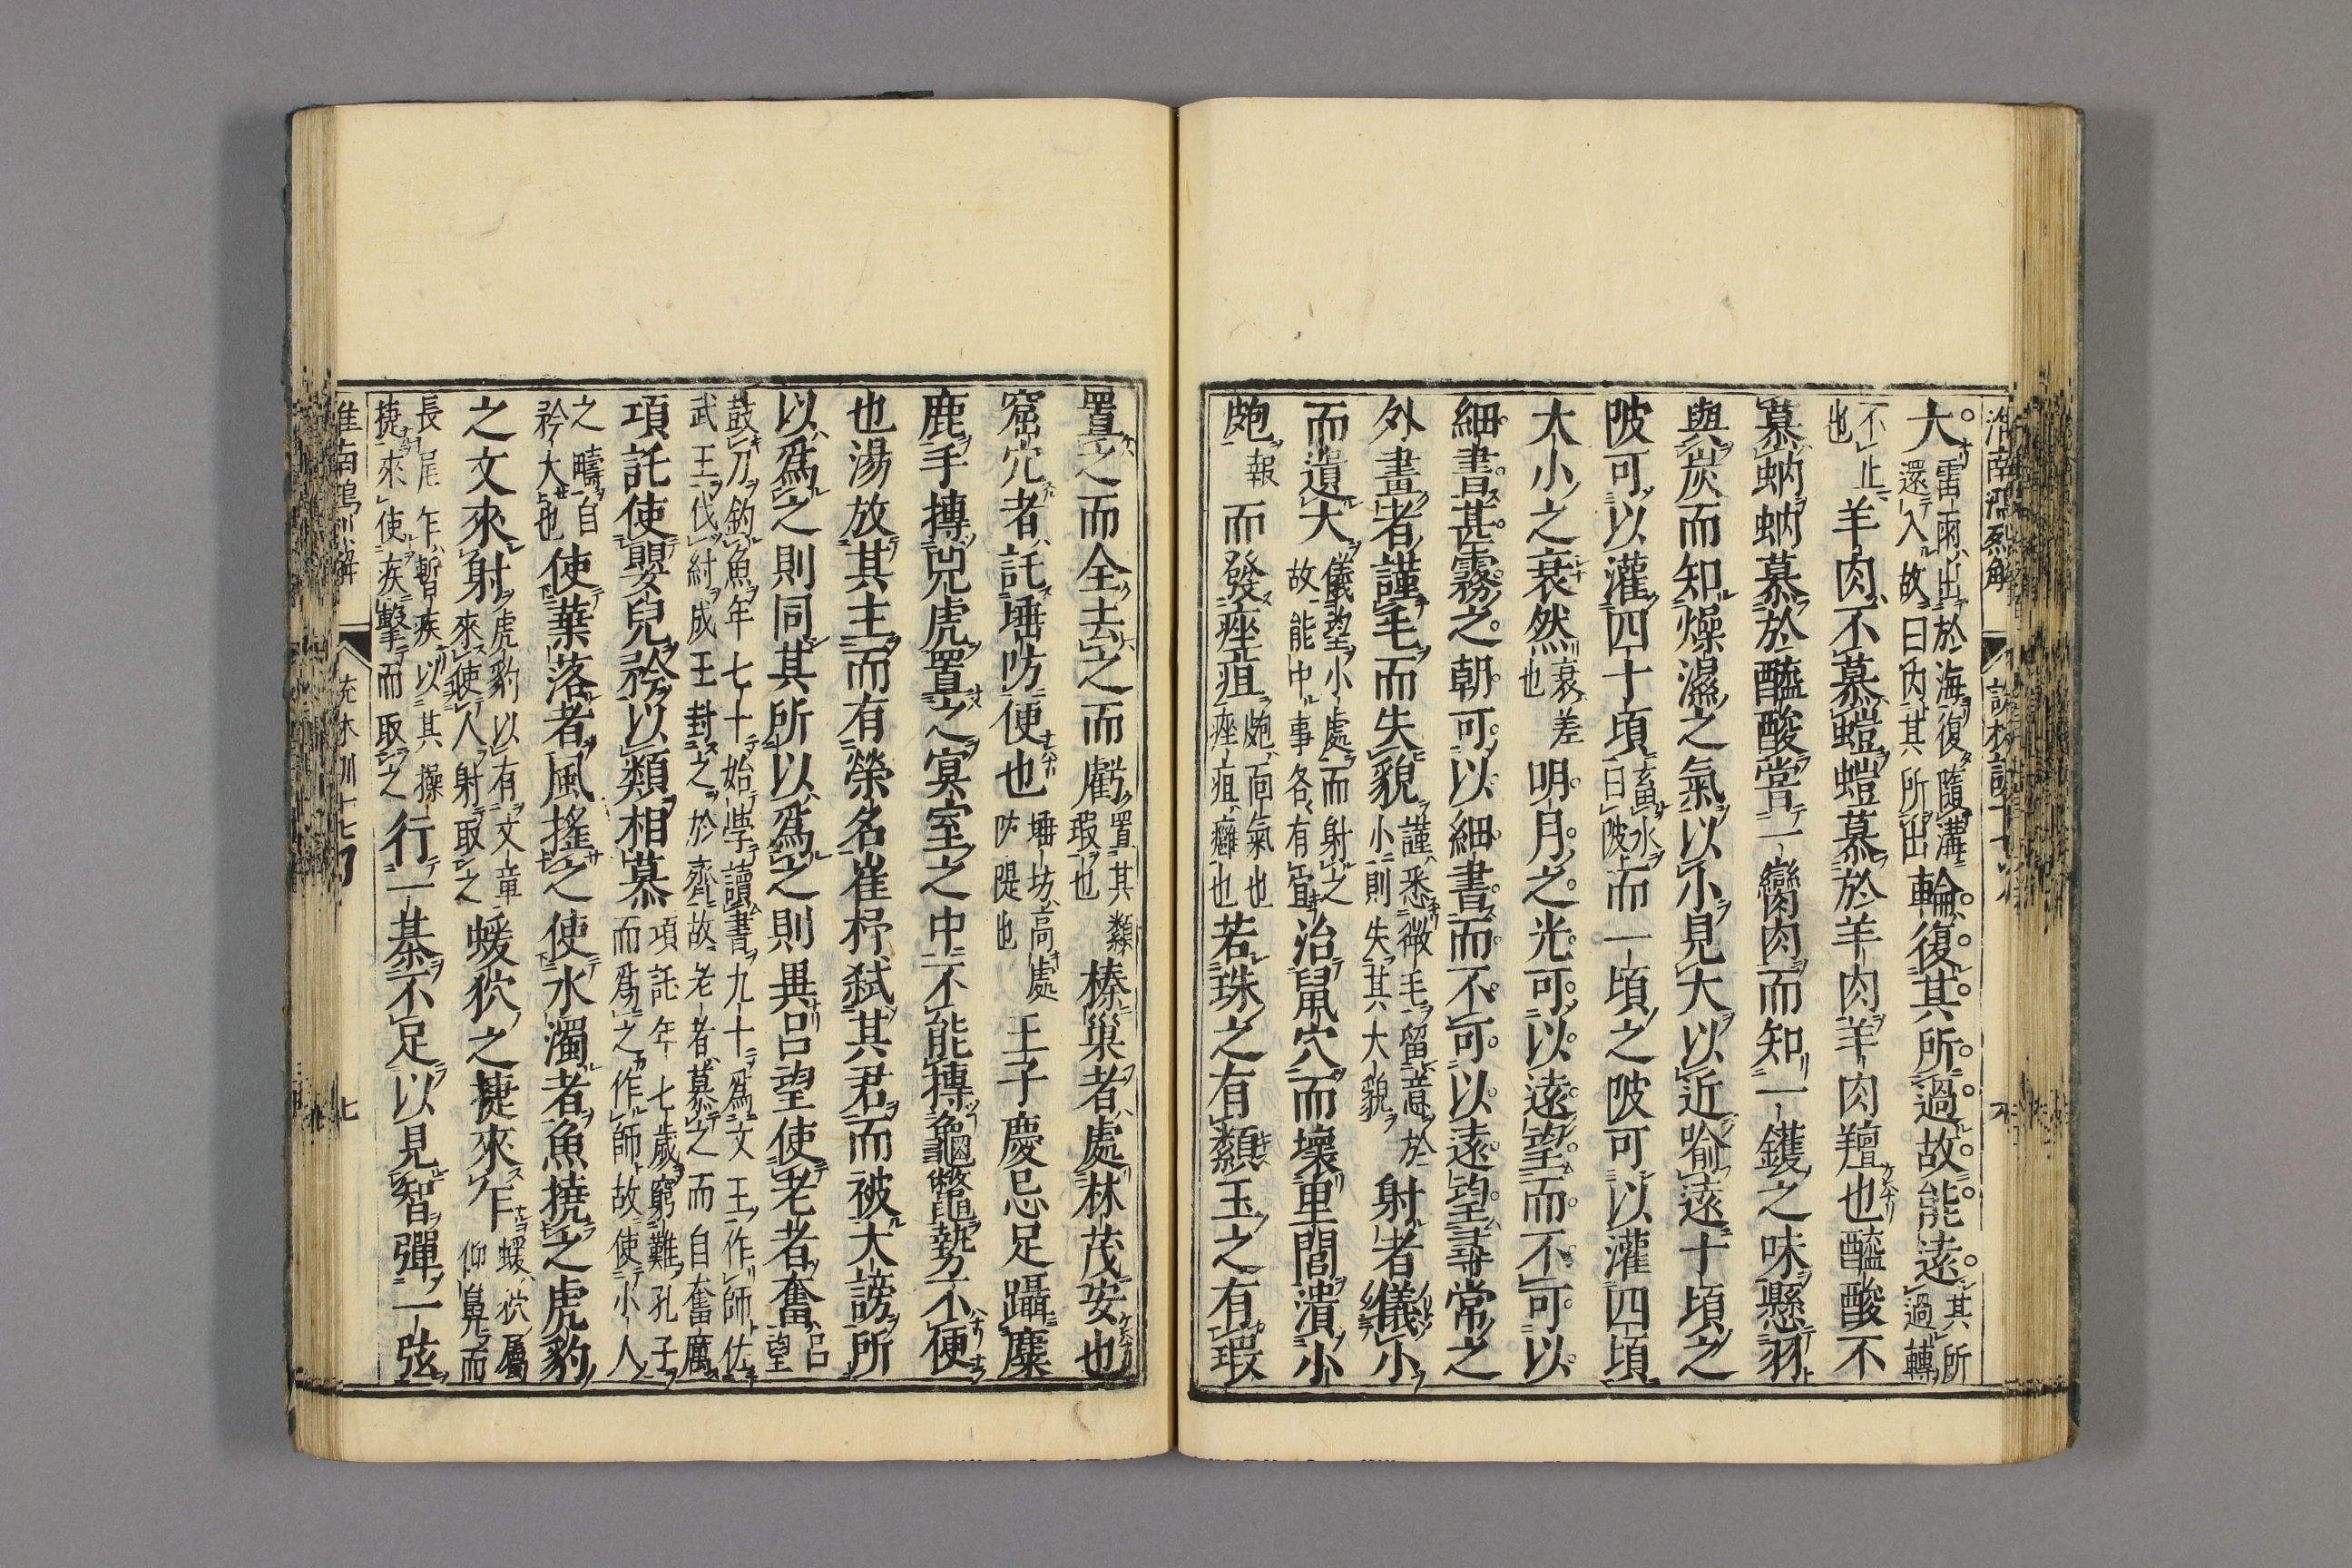 大雷雨出於海復隨溝還入故曰內其所出輪復其所過故能遠其所過轉
不止也羊肉不慕螘螘慕於羊肉羊肉羶也醯酸不
慕蚋蚋慕於醯酸嘗一臠肉而知一鑊之味懸羽
與炭而知燥濕之氣以小見大以近喻遠十頃之
陂可以灌四十頃畜水曰陂而一頃之陂可以灌四頃
大小之衰然衰差也明月之光可以遠望而不可以
細書甚霧之朝可以細書而不可以遠望尋常之
外畫者謹毛而失貌謹悉微毛留意於小則失其大貌射者儀小
而遺大儀望小處而射之故能中事各有宜治鼠穴而壞里閭潰小
皰報而發痤疽皰面氣也痤疽癰也若珠之有纇玉之有瑕
置之而全去之而虧置其纇瑕也榛巢者處林茂安也
窟穴者託埵防便也埵坊高處防隄也王子慶忌足躡麋
鹿手搏兕虎置之冥室之中不能搏龜鱉勢不便
也湯放其主而有榮名崔杼弒其君而被大謗所
以爲之則同其所以爲之則異呂望使老者奮呂望
鼓刀釣魚年七十始學讀書九十爲文王作師佐武王伐紂成王封之於齊故老者慕之而自奮厲
項託使嬰兒矜以類相慕項託年七歲窮難孔子而爲之作師故使小人
之疇自矜大也使葉落者風搖之使水濁者魚撓之虎豹
之文來射虎豹以有文章來使人射取之蝯狖之捷來乍蝯狖屬仰鼻而
長尾乍暫疾以其操捷來使疾擊而取之行一棊不足以見智彈一弦
七